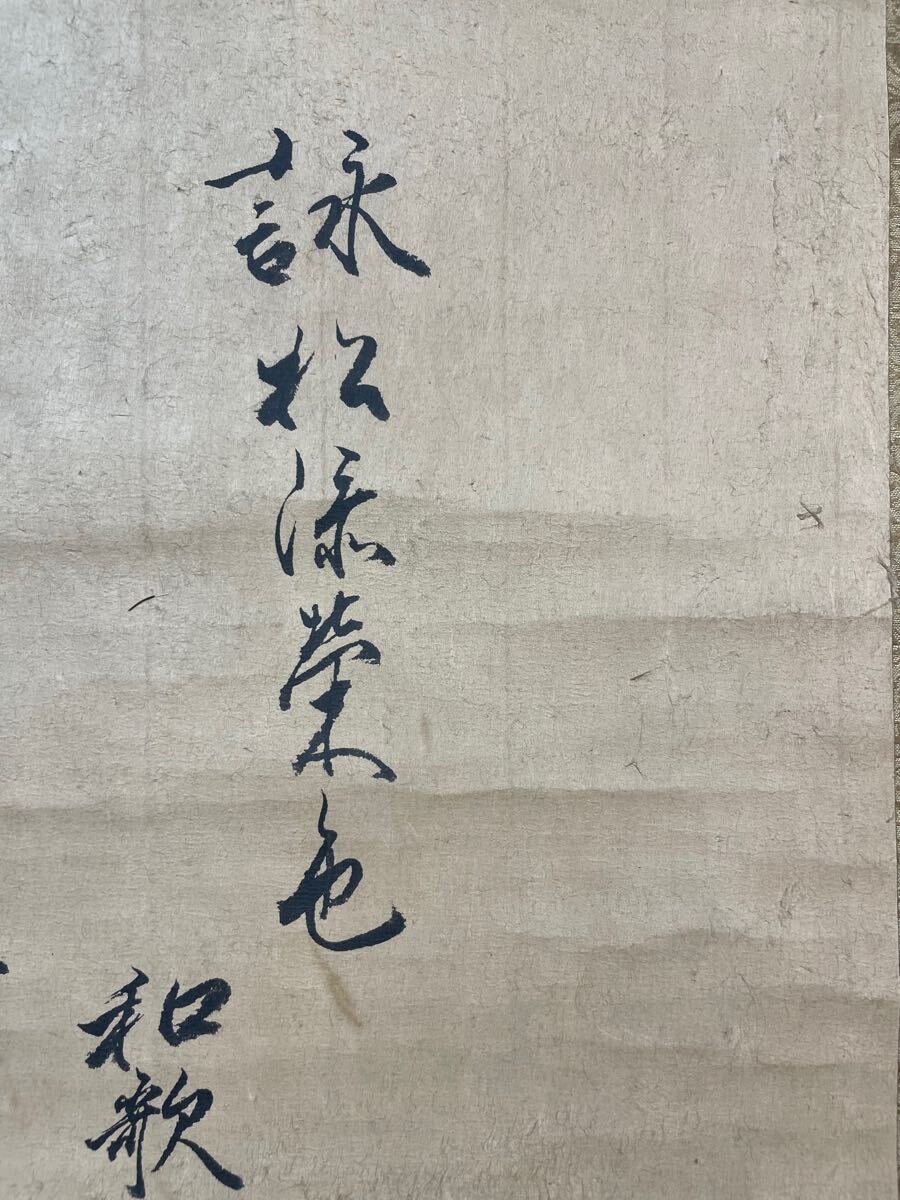 詠松添榮色
和歌